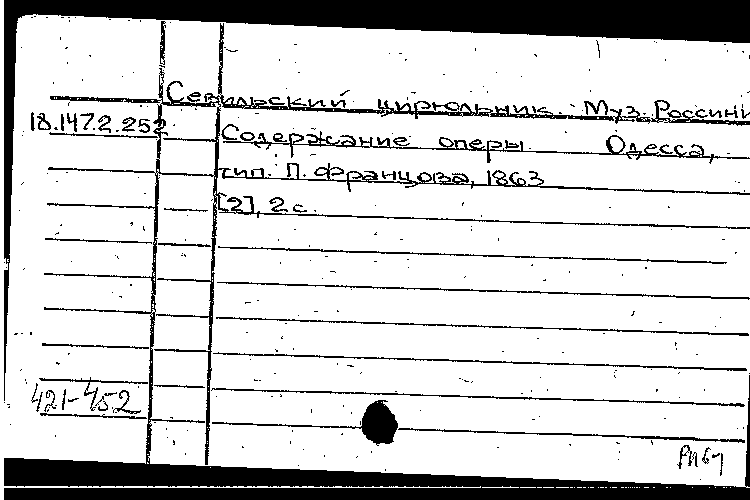 Севильский цирюльник. Муз. Россини
18.147.2.252
Содержание оперы Одесса,
тип. П. Францова, 1863
[2], 2 с.
421-452